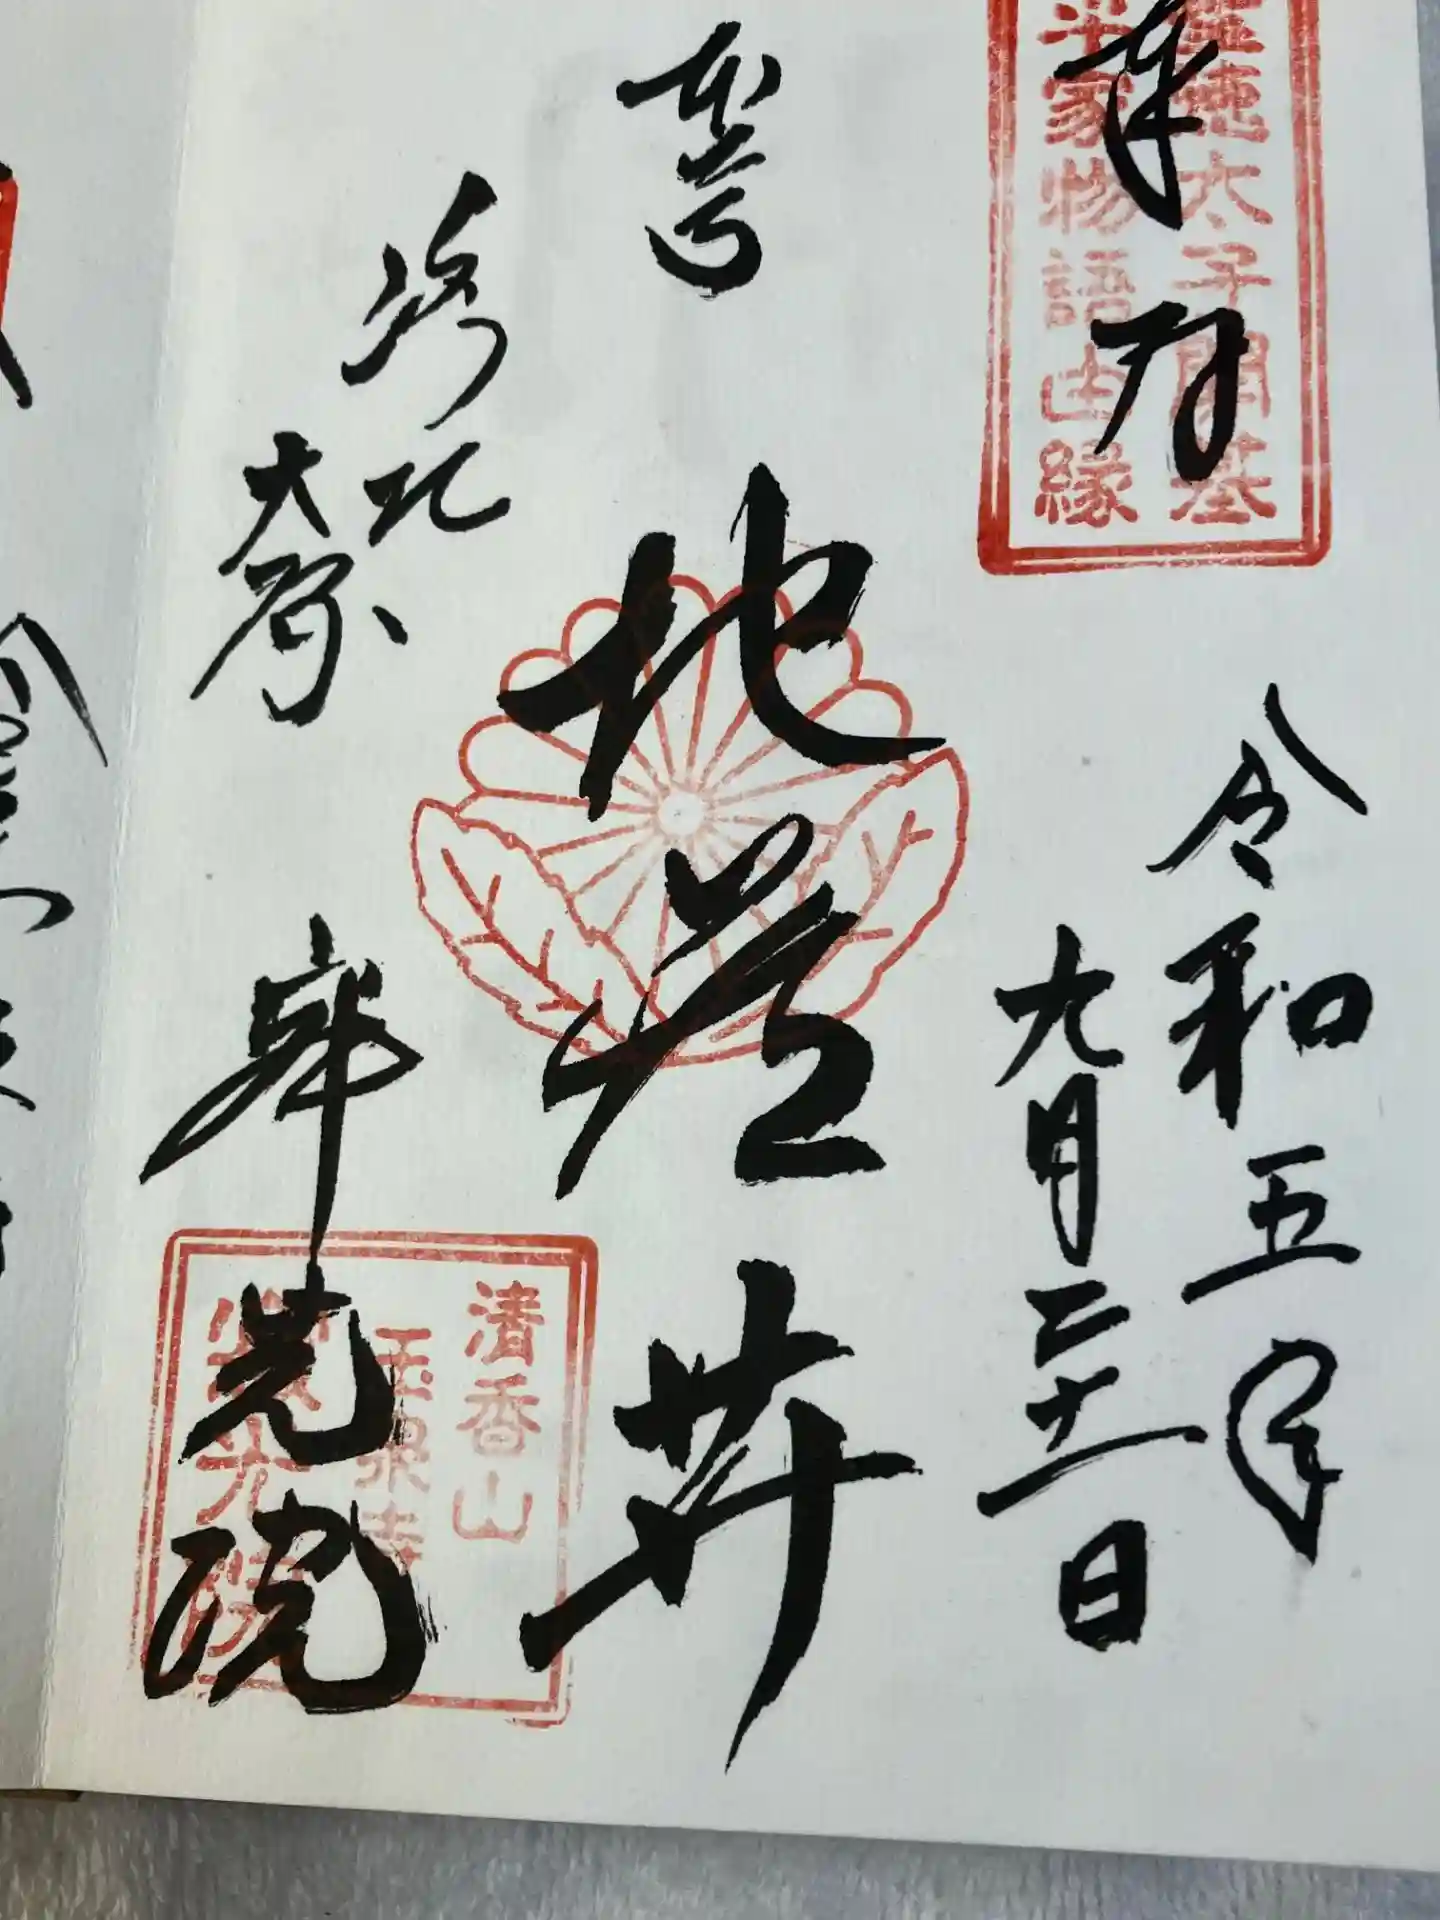 奉拝
聖徳太子開基
平家物語由縁
令和五年
九月二十一日
地蔵𦬇
洛北
大原
寂光院
清香山
玉泉寺
寂光院